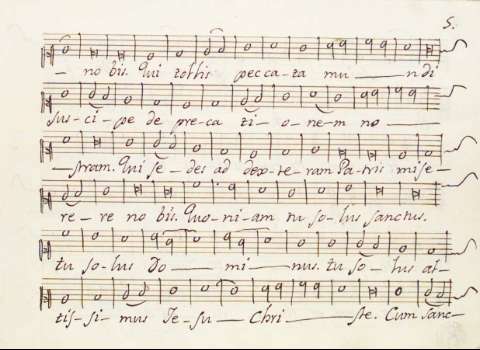 5.
- no bis. Qui tollis pec-ca-ta mu — ndi
sus-ci-pe de pre-ca ti - o - ne-m no —
— stram. Qui se-des ad dex-te-ram Pa-tris mise-
re-re no bis. Quo-ni-am tu so-lus sanctus.
tu so-lus Do — mi — nus. tu so-lus al-
tis-si-mus Je-su — Chri — ste. Cum sanc-